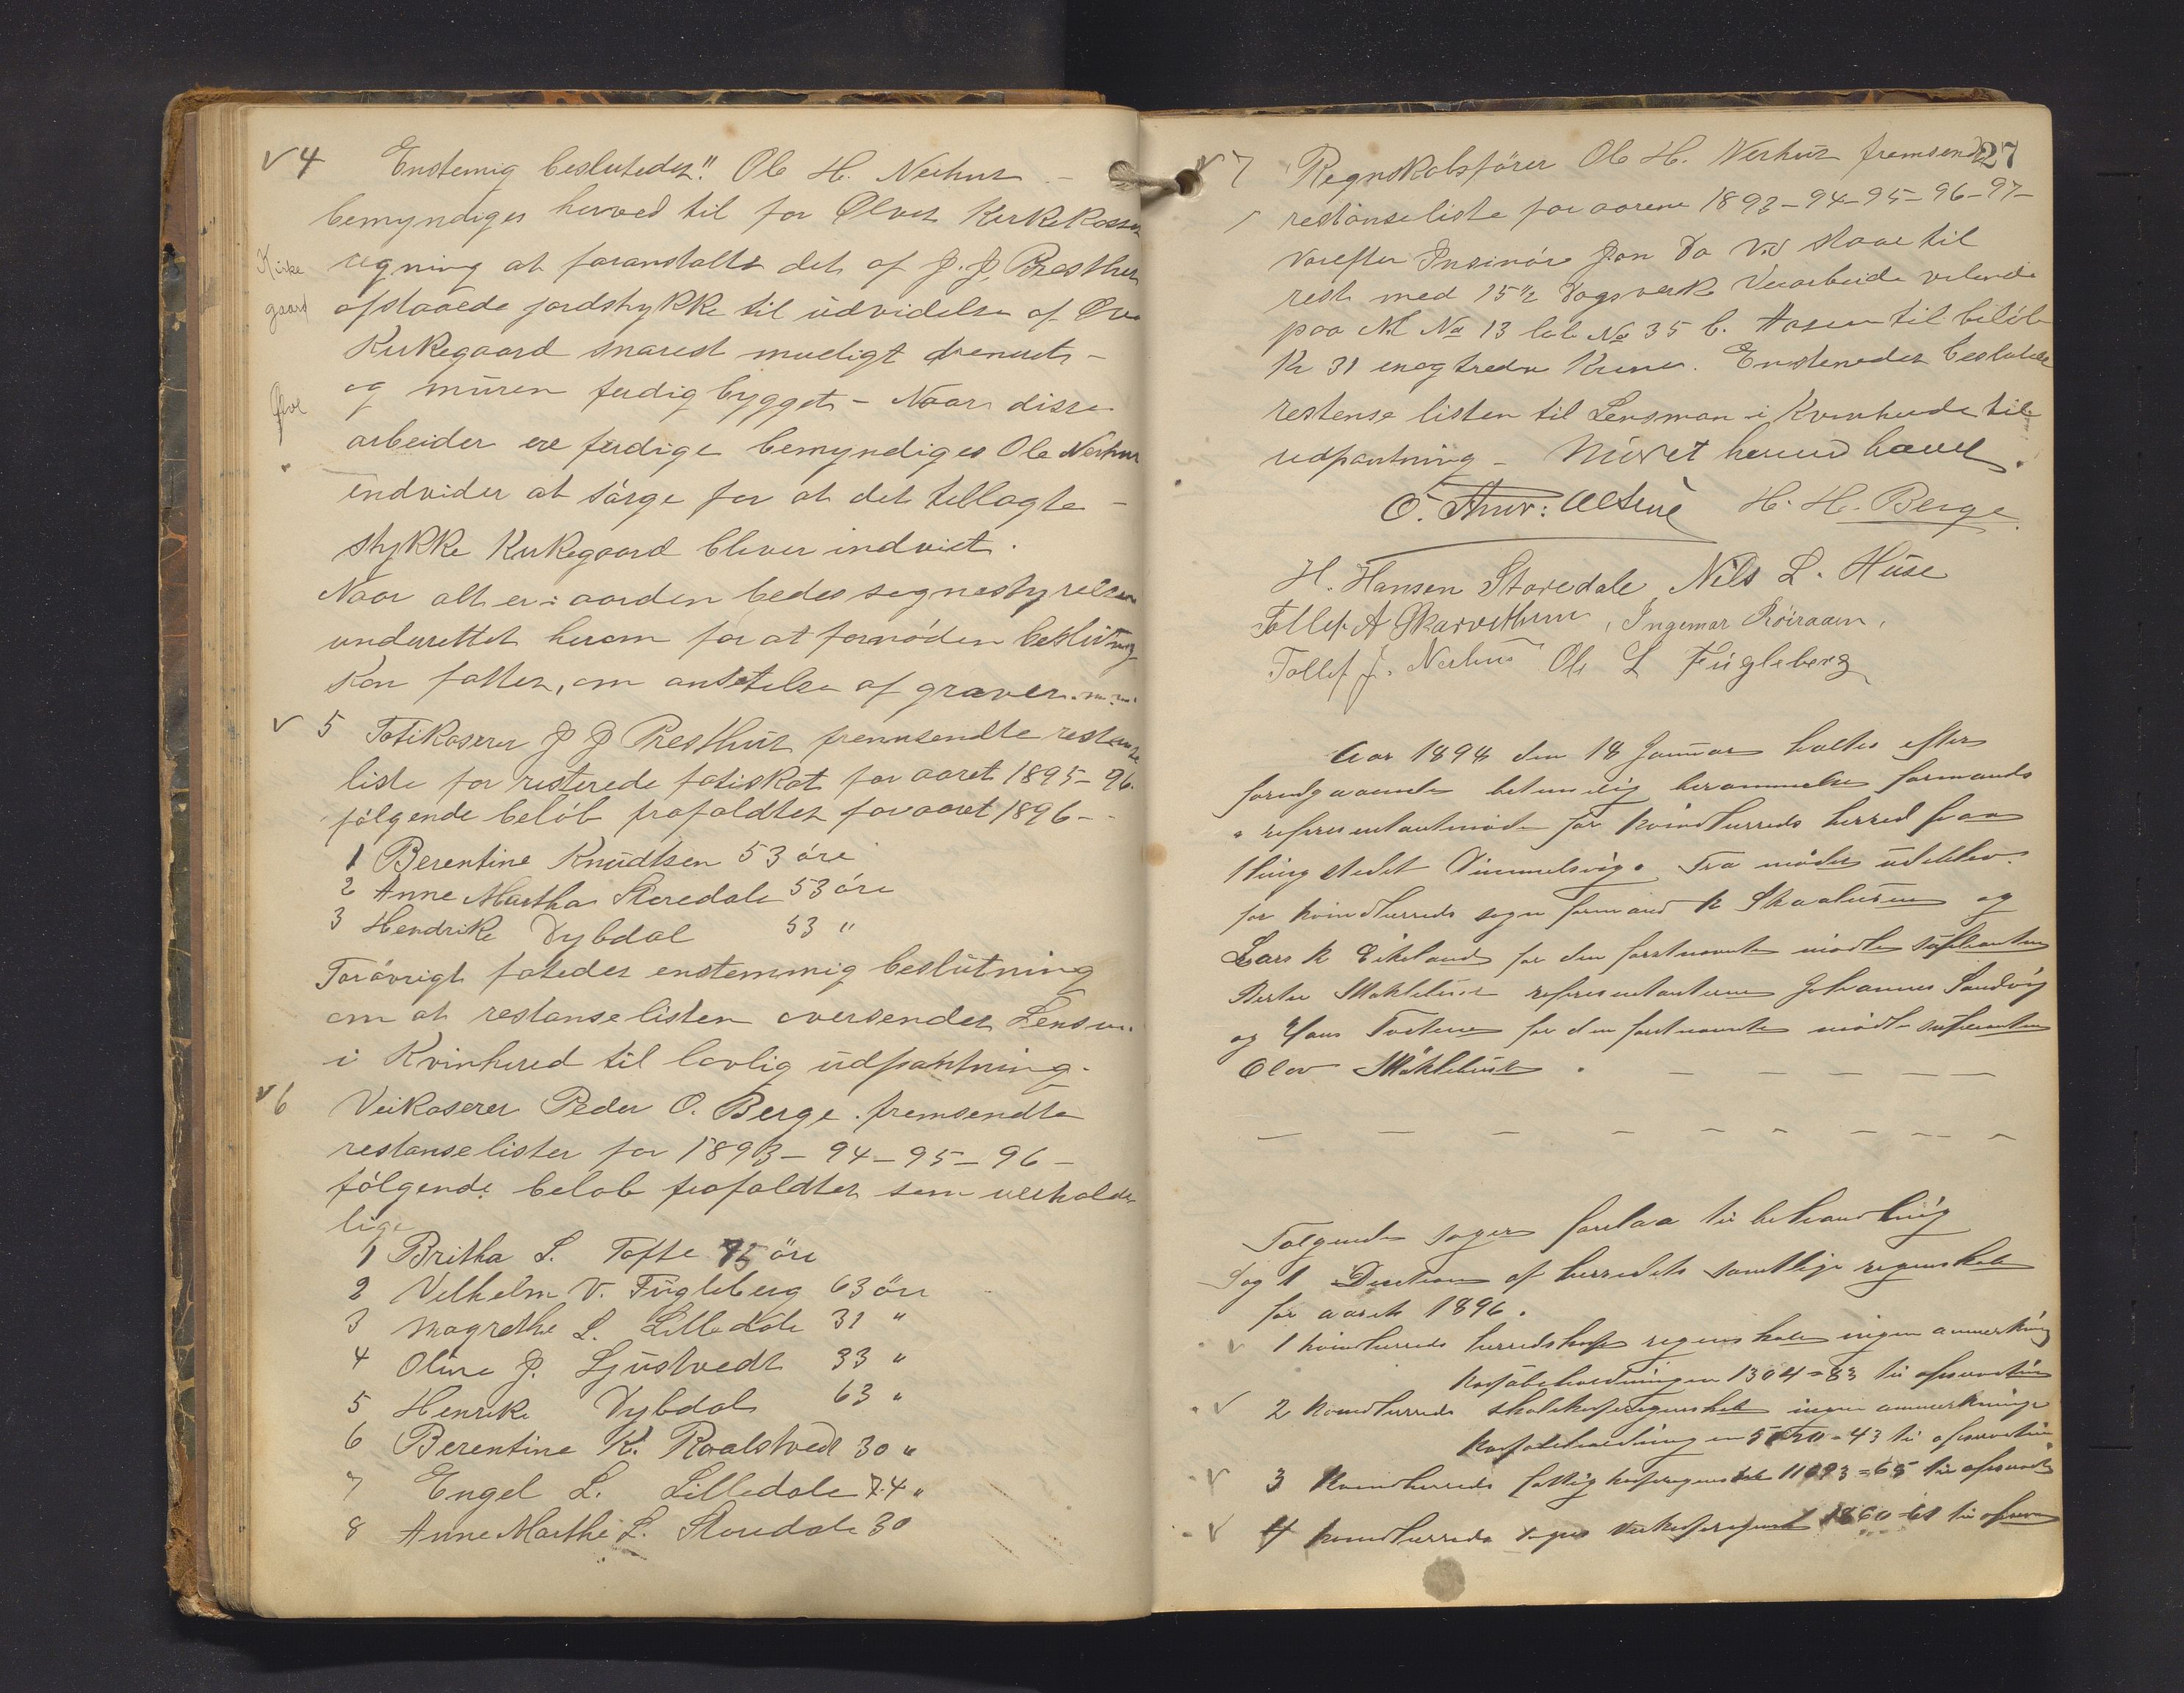 V 4 Enstemig beslutedes!! Ole H. Nerhus -
bemyndiges herved til for Ølves Kirkekasses
Kirke regning at foranstalte det af J. J. Presthus
gaard afstaaede jordstykke til udvidelse af Ølve
Kirkegaard snarest mueligt drenerets -
Ølve og muren ferdig bygget - Naar disse
arbeider ere ferdige bemyndiges Ole Nerhus
endvider at sørge for at det tillagte -
stykke Kirkegaard bliver indviet.
Naar alt er i aarden bedes sognestyrelsen
underrettet herom for at fornøden beslutning
kan fattes, om ansetelse af graver m. m.
V 5 Fatikaserer J J Presthus fremsendte restanse
liste for resterede fatiskat for aaret 1895-96.
følgende beløb frafaldtes for aaret 1896 -
1 Berentine Knudtsen 53 øre
2 Anne Martha Storedale 53 øre
3 Hendrike Dybdal 53 "
Forøvrigt fatedes enstemmig beslutning
om at restanselisten oversendes Lensm.
i Kvinhered til lovlig udpantning.
V 6 Veikaserer Peder O. Berge fremsendte
restanselister for 1893 - 94 - 95 - 96 -
følgende beløb frafaldtes som uerholde
lige
1 Britha S. Tofte 75 øre
2 Velhelm V. Fugleberg 63 øre
3 Magrethe L. Lilledale 31 "
4 Oline J. Ljustvedt 33 "
5 Henrike Dybdal 63 "
6 Berentine K. Roalstvedt 30 "
7 Engel L. Lilledale 74 "
8 Anne Marthe L. Storedale 30
27
V 7 Regnskabsfører Ole H. Nerhus fremsendte
restanseliste for aarene 1893-94-95-96-97-
varefter Insinøre Jon Da Vid staae til
rest med 15½ Dagsverk Veiarbeide
paa M No 13 No 35 b. til beløb
Kr 31 enogtredve Kroner. Enstemedes besluttede
restense listen til Lensman i Kvinherde til
udpantning - Møtet herved hævet.
O. H. H. Berge
H. Hansen Storedale Nils L. Huse
Tollef A Skarvethun, Ingemar Røiraaen,
Tollef J. Nerhus Ole L Fugleberg
Aar 1898 den 18 Januar holtes efter
foregaaende betimelig berammelse formands
og representantmøde for Kvindherreds herred paa
thingstedet Dimmelsvig. Fra mødet udeblev
for Kvindherreds sogn formand K Skaaluren og
Lars K Eikeland for den førstnevnte mødte suplianten
Berte Mæhlehuse representanterne Johannes Sandvig
og Hans for den førstnævnte mødte suplianten
Olav Mæhlehuse . — — — —
— — — — — — — — —
Følgende sager forelaa til behandling
Sag 1 Desition af herredets samtlige regnskab
for aaret 1896.
V 1 Kvindherreds herredskasse regnskab ingen anmerkning
kassabeholdningen 1304=83 til
V 2 Kvindherreds skolekasseregnskab ingen anmerkninger
kassabeholdningen 43 til
V 3 Kvindherreds fattigkasseregnskab 11093=65 til
V 4 Kvindherreds sogns Veikasseregnskab 1860 til